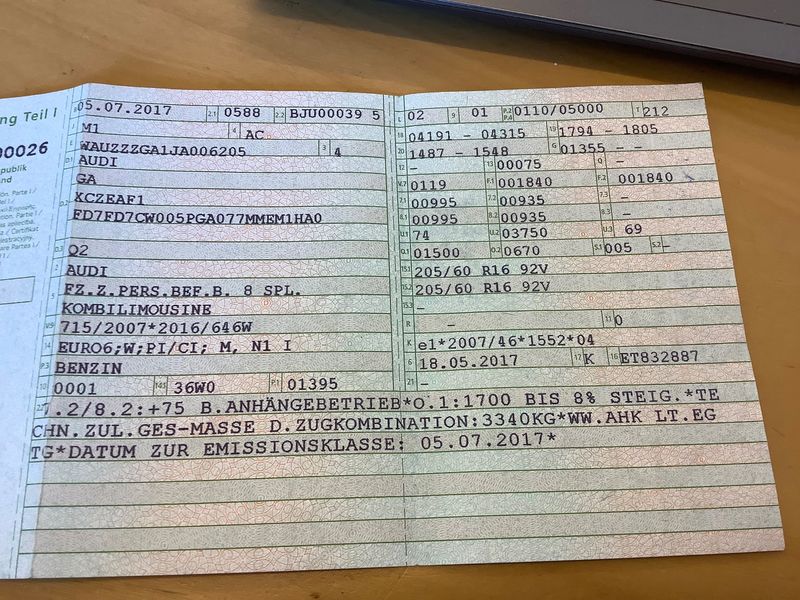 ng Teil I
00026
publik
nd
05.07.2017 2.1 0588 2.2 BJU00039 5
M1 4 AC
WAUZZZGA1JA006205 3 4
D.1 AUDI
GA
D.2 KCZEAF1
FD7FD7CW005PGA077MMEM1HA0
D.3 Q2
2 AUDI
5 FZ.Z.PERS.BEF.B. 8 SPL.
KOMBILIMOUSINE
V.9 715/2007*2016/646W
14 EURO6;W;PI/CI; M, N1 I
P.3 BENZIN
10 0001 14.1 36W0 P.1 01395
L 02 9 01 P.2 P.4 0110/05000 T 212
18 04191 - 04315 19 1794 - 1805
20 1487 - 1548 G 01355 - -
12 - 13 00075 Q -
V.7 0119 F.1 001840 F.2 001840
7.1 00995 7.2 00935 7.3 -
8.1 00995 8.2 00935 8.3 -
U.1 74 U.2 03750 U.3 69
O.1 01500 O.2 0670 S.1 005 S.2 -
15.1 205/60 R16 92V
15.2 205/60 R16 92V
15.3 -
R - 11 0
K e1*2007/46*1552*04
6 18.05.2017 17 K 16 ET832887
21 -
22 7.2/8.2:+75 B.ANHÄNGEBETRIEB*O.1:1700 BIS 8% STEIG.*TE
CHN.ZUL.GES-MASSE D.ZUGKOMBINATION:3340KG*WW.AHK LT.EG
TG*DATUM ZUR EMISSIONSKLASSE: 05.07.2017*